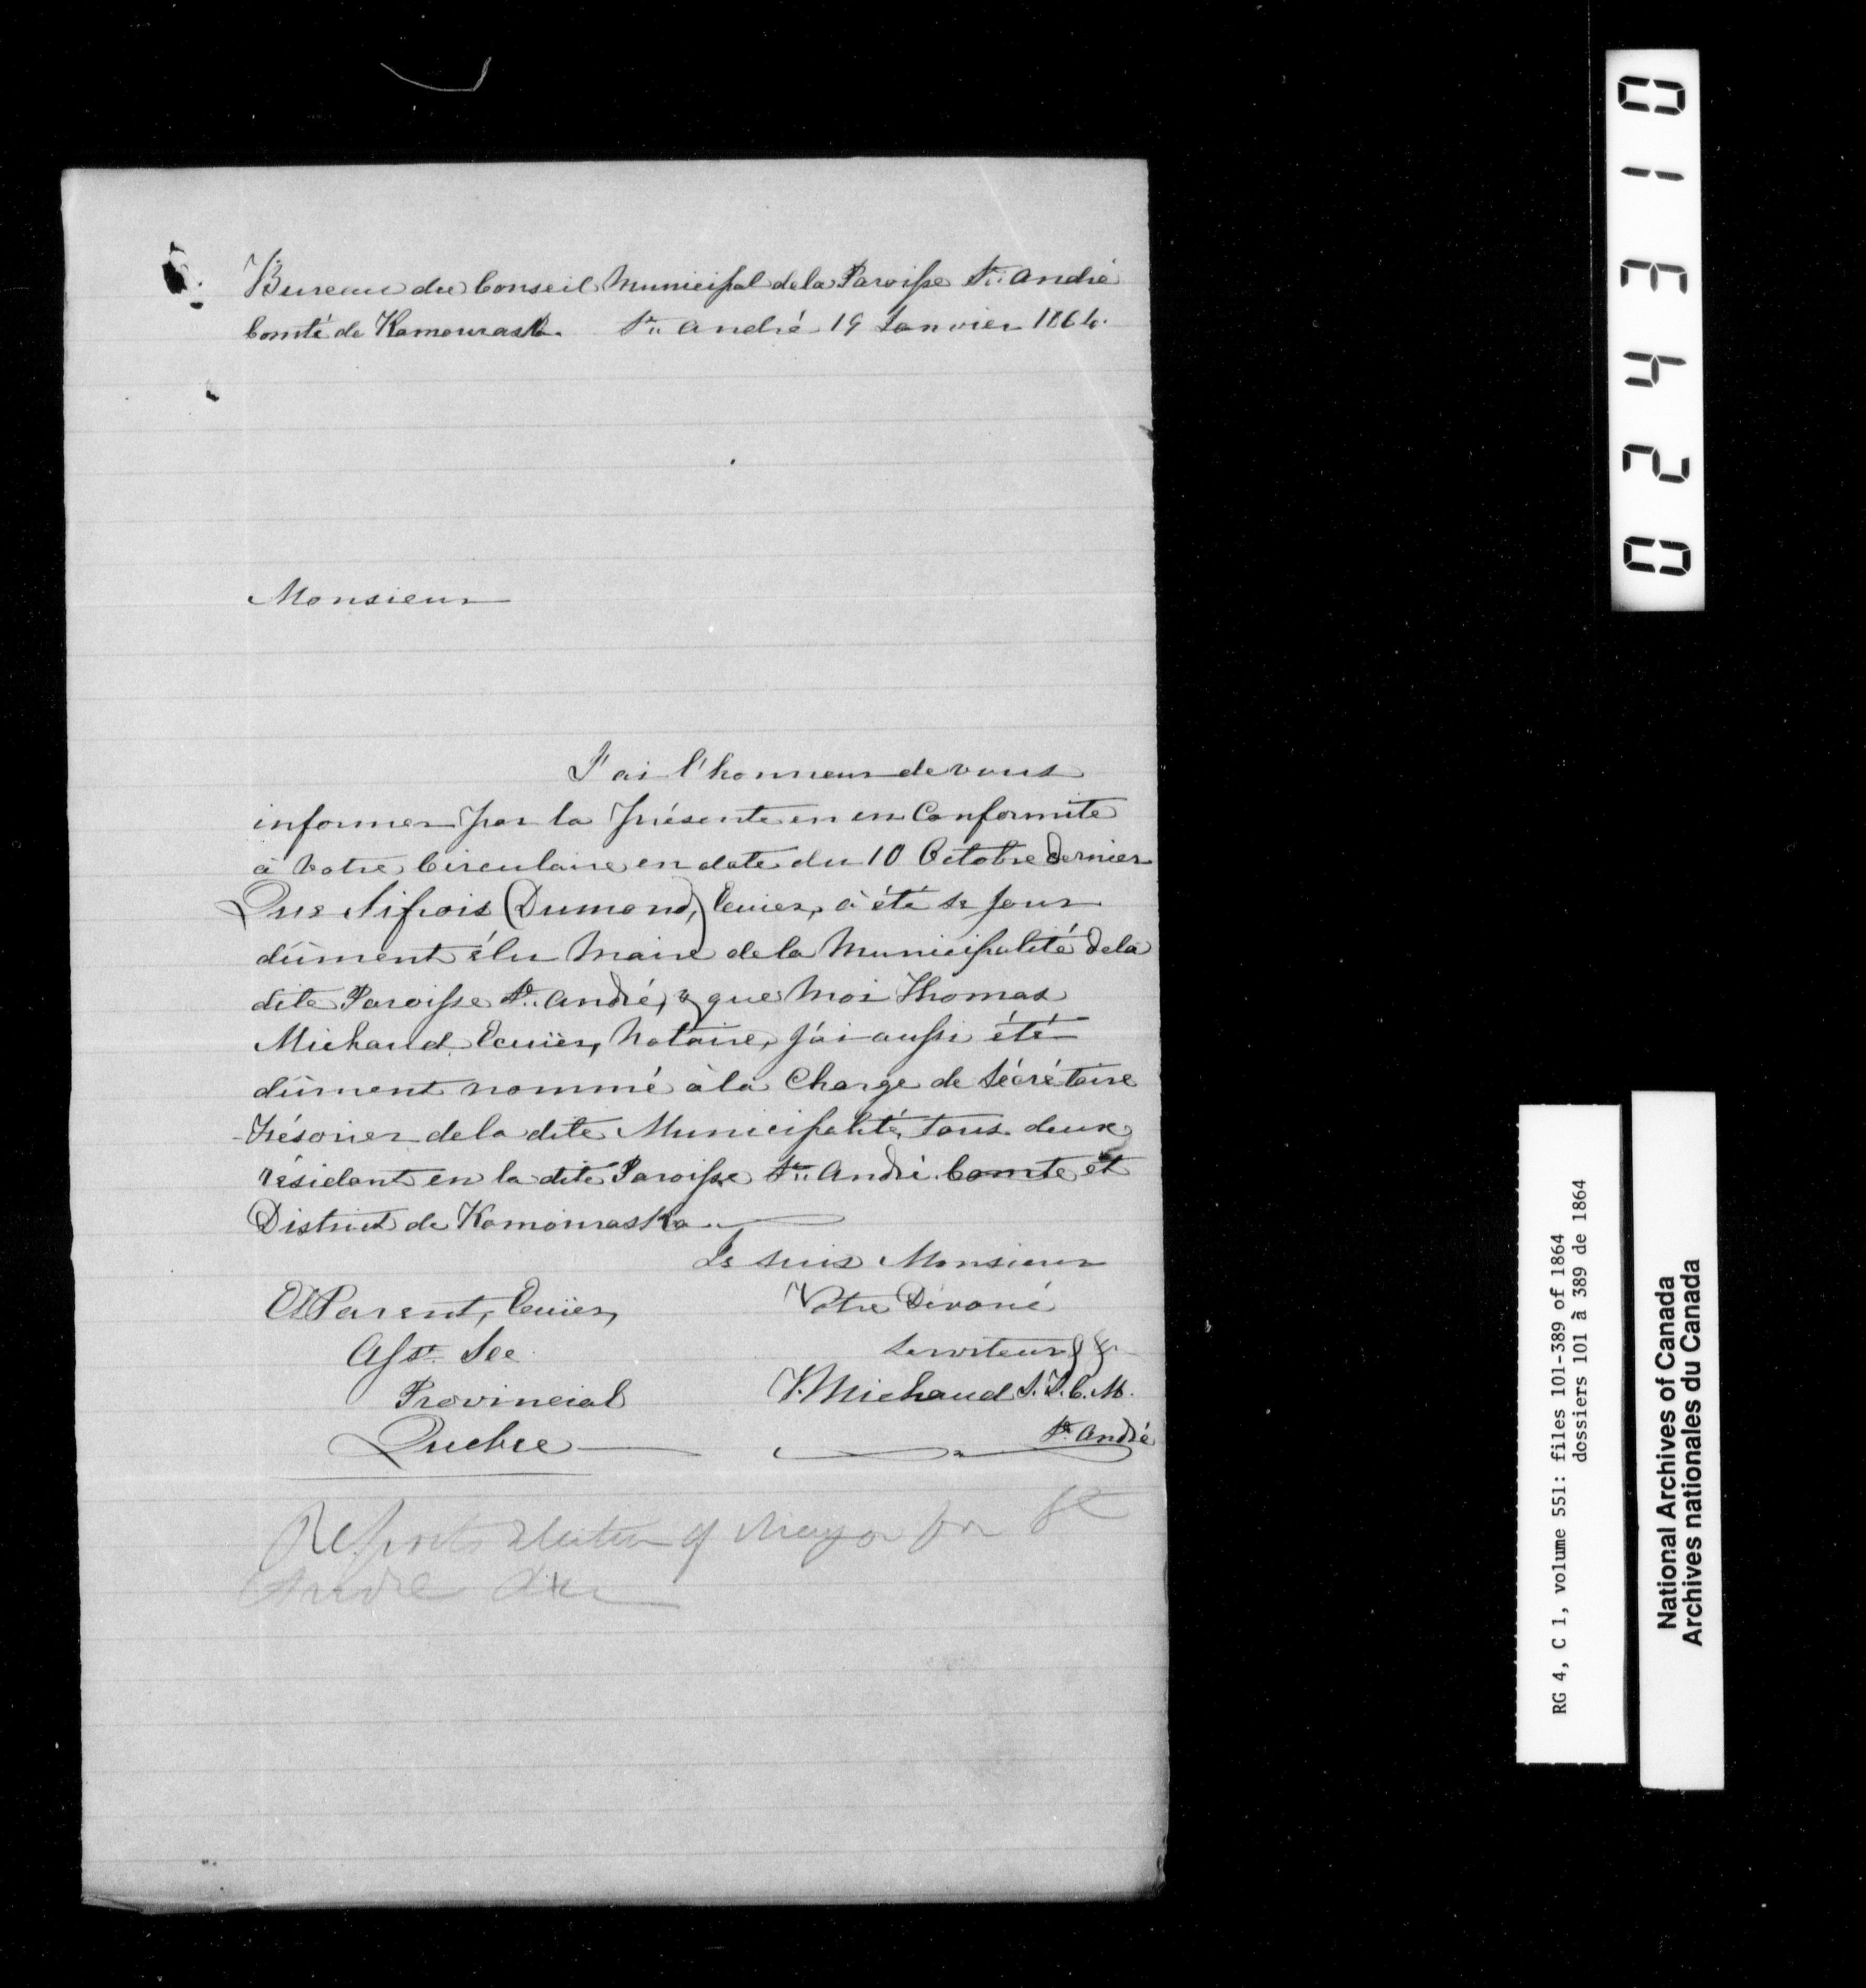 Bureau du Conseil Municipal de la Paroisse St. André
Comté de Kamouraska. St. André 19 Janvier 1864.
Monsieur
J'ai l'honneur de vous
informer par la présente en en Conformité
à votre Circulaire en date du 10 Octobre dernier
Que Sifrois (Dumond,) Ecuier, a été ce jour
dûment élu Maire de la Municipalité de la
dite Paroisse St. André, & que Moi Thomas
Michaud Ecuier, Notaire, j'ai aussi été
dûment nommé à la Charge de Sécrétaire
Trésorier de la dite Municipalité, tous deux
résidant en la dite Paroisse St. André Comté et
District de Kamouraska
Je suis Monsieur
Et Parent, Ecuier,
Votre Dévoué
Asst. Sec
Serviteur &&
Provincial
T. Michaud S.T.C.M.
Quebec
St. André
Reports Election of Mayor for St
André &c
024310
RG 4, C 1, volume 551: files 101-389 of 1864
dossiers 101 à 389 de 1864
National Archives of Canada
Archives nationales du Canada